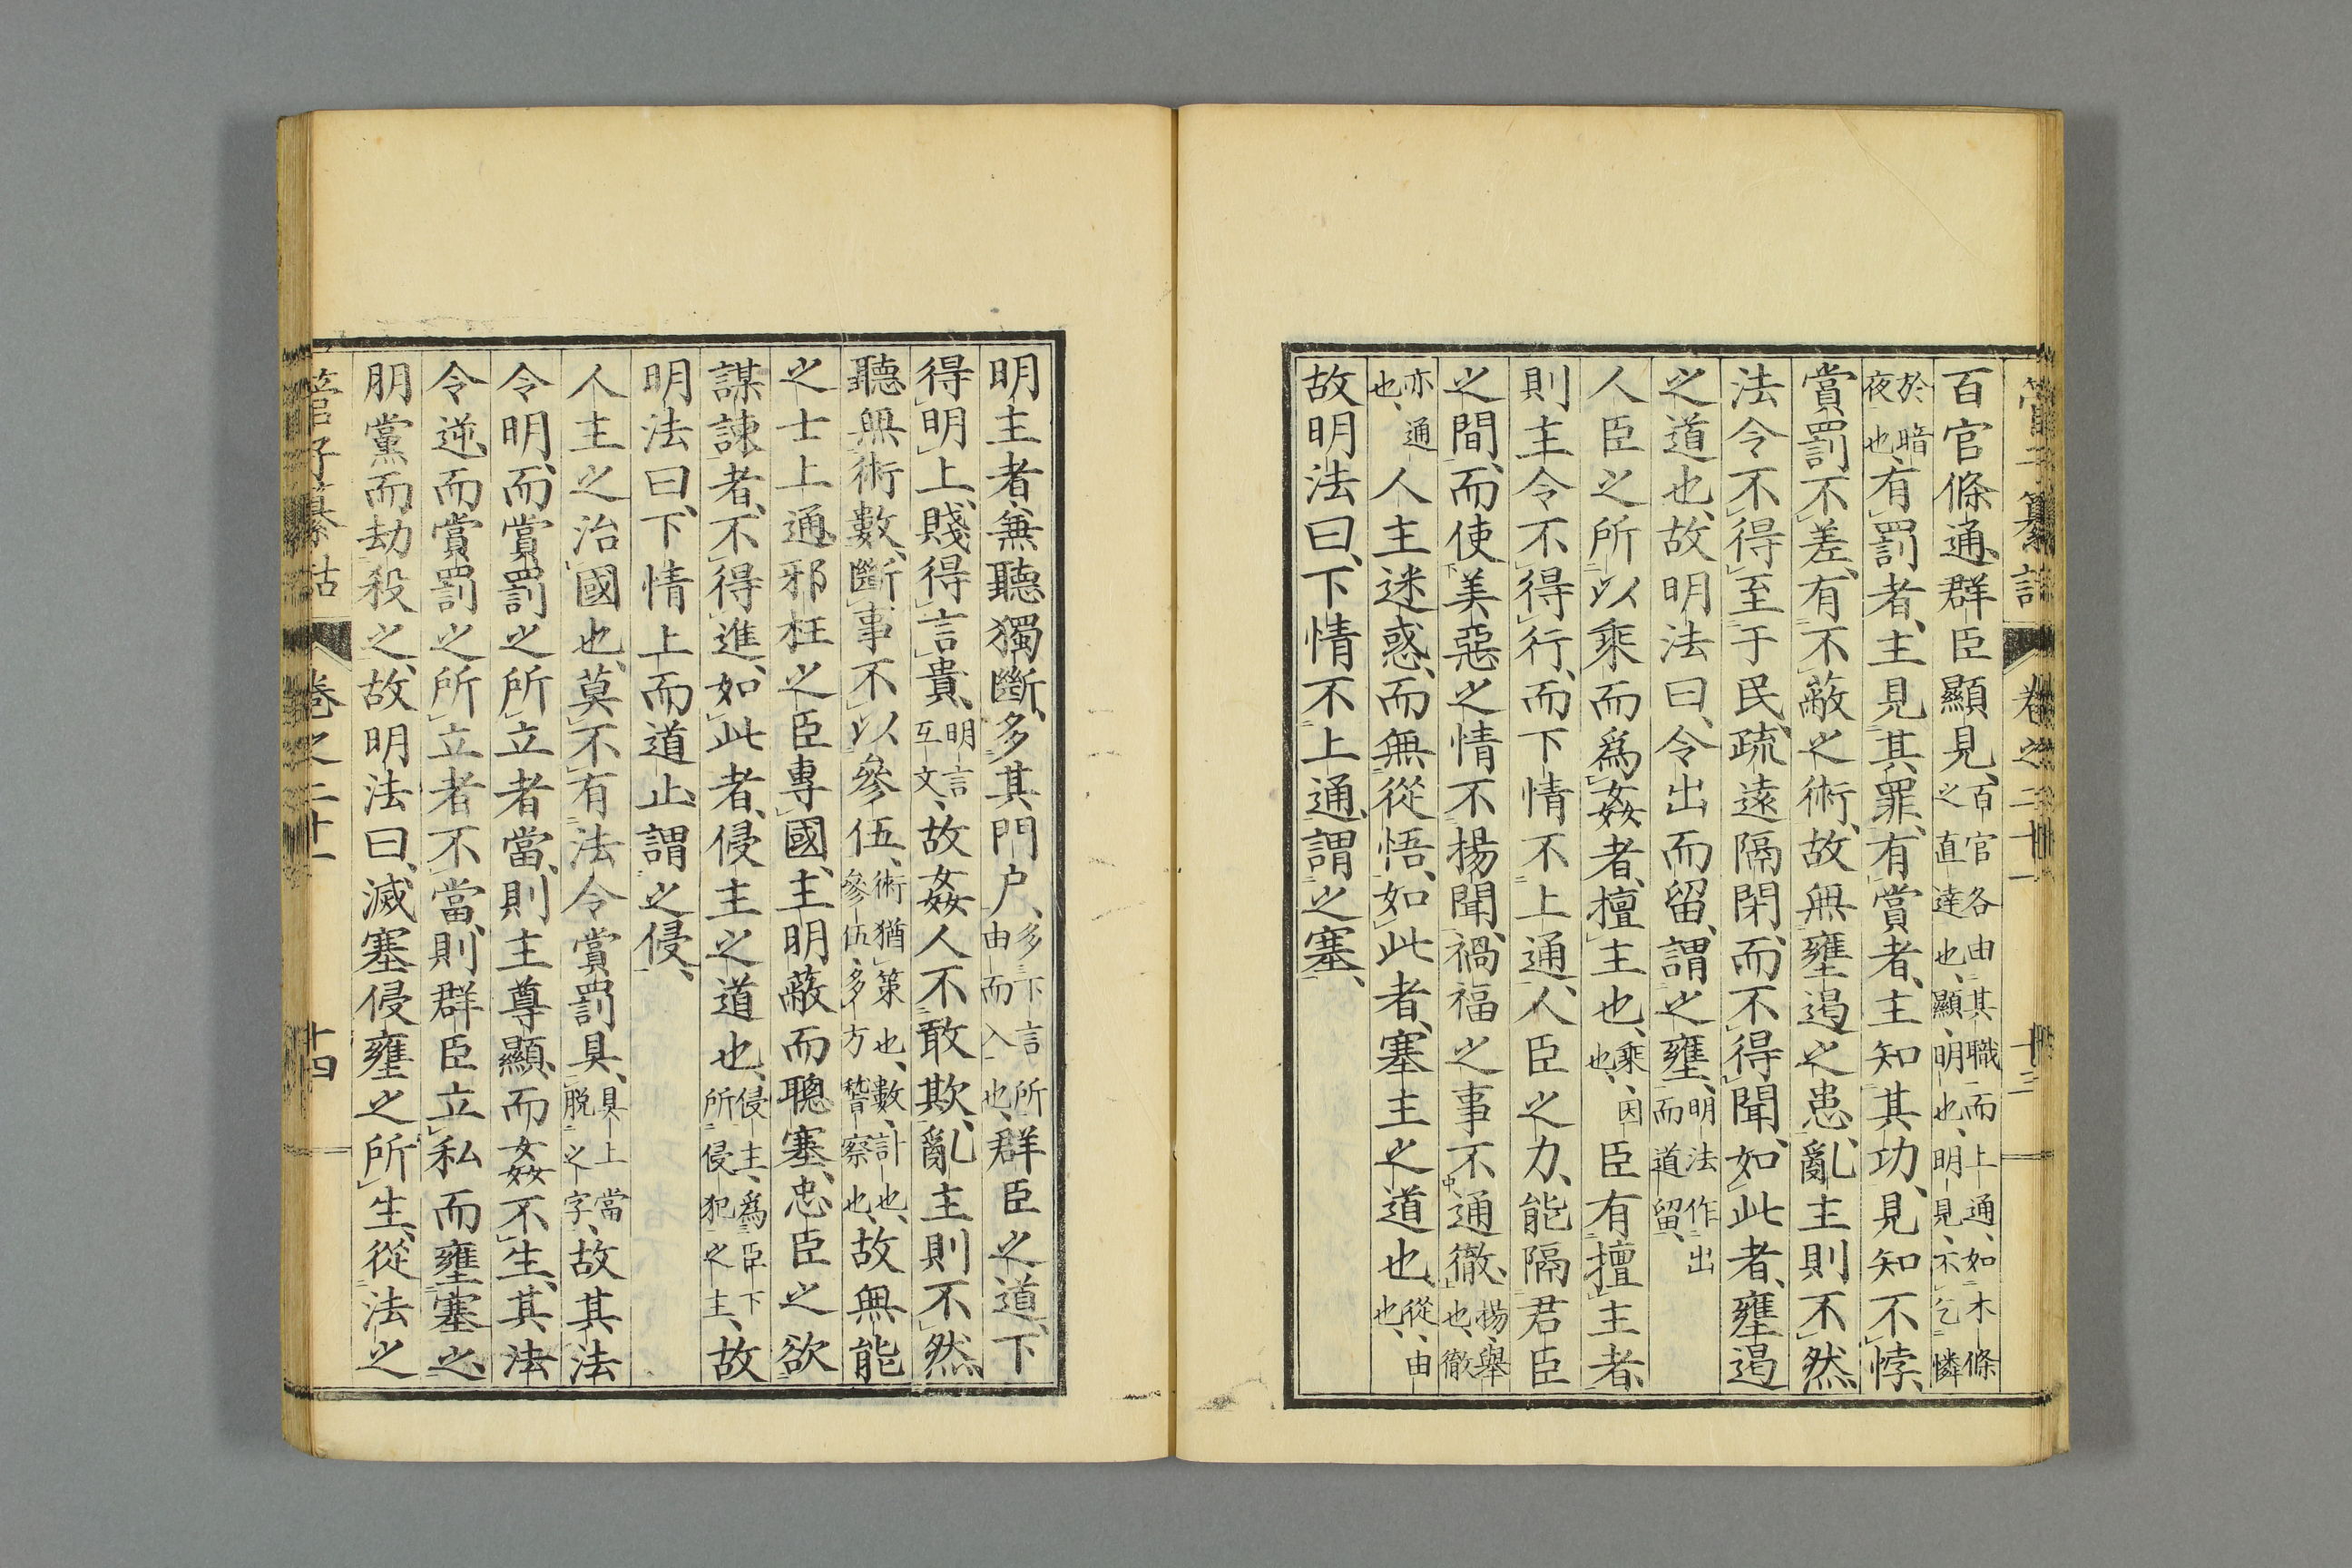 管子纂詁 卷之二十一 十三
百官條通、群臣顯見、百官各由其職而上通、如木條之直達也、顯、明也、明見、不乞憐
於暗夜也、有罰者、主見其罪、有賞者、主知其功、見知不悖、
賞罰不差、有不蔽之術、故無壅遏之患、亂主則不然、
法令不得至于民、疏遠隔閉、而不得聞、如此者、壅遏
之道也、故明法曰、令出而留、謂之壅、明法作出而道留、
人臣之所以乘而爲姦者、擅主也、乘、因也、臣有擅主者、
則主令不得行、而下情不上通、人臣之力、能隔君臣
之間、而使美惡之情不揚聞、禍福之事不通徹、揚、舉也、徹
亦通也、人主迷惑、而無從悟、如此者、塞主之道也、從、由也、
故明法曰、下情不上通、謂之塞、
明主者、兼聽獨斷、多其門户、多下言所由而入也、群臣之道、下
得明上、賤得言貴、明言互文、故姦人不敢欺、亂主則不然、
聽無術數、斷事不以參伍、術猶策也、數、計也、參伍、多方譥察也、故無能
之士上通、邪枉之臣專國、主明蔽而聰塞、忠臣之欲
謀諫者、不得進、如此者、侵主之道也、侵主、爲臣下所侵犯之主、故
明法曰、下情上而道止、謂之侵、
人主之治國也、莫不有法令賞罰具、具上當脱之字、故其法
令明、而賞罰之所立者當、則主尊顯、而姦不生、其法
令逆、而賞罰之所立者不當、則群臣立私而壅塞之、
朋黨而劫殺之、故明法曰、滅塞侵壅之所生、從法之
管子纂詁 卷之二十一 十四